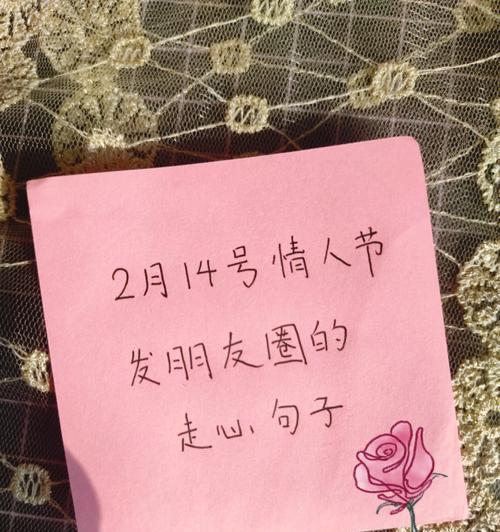 2月14号情人节
发朋友圈的
走心句子